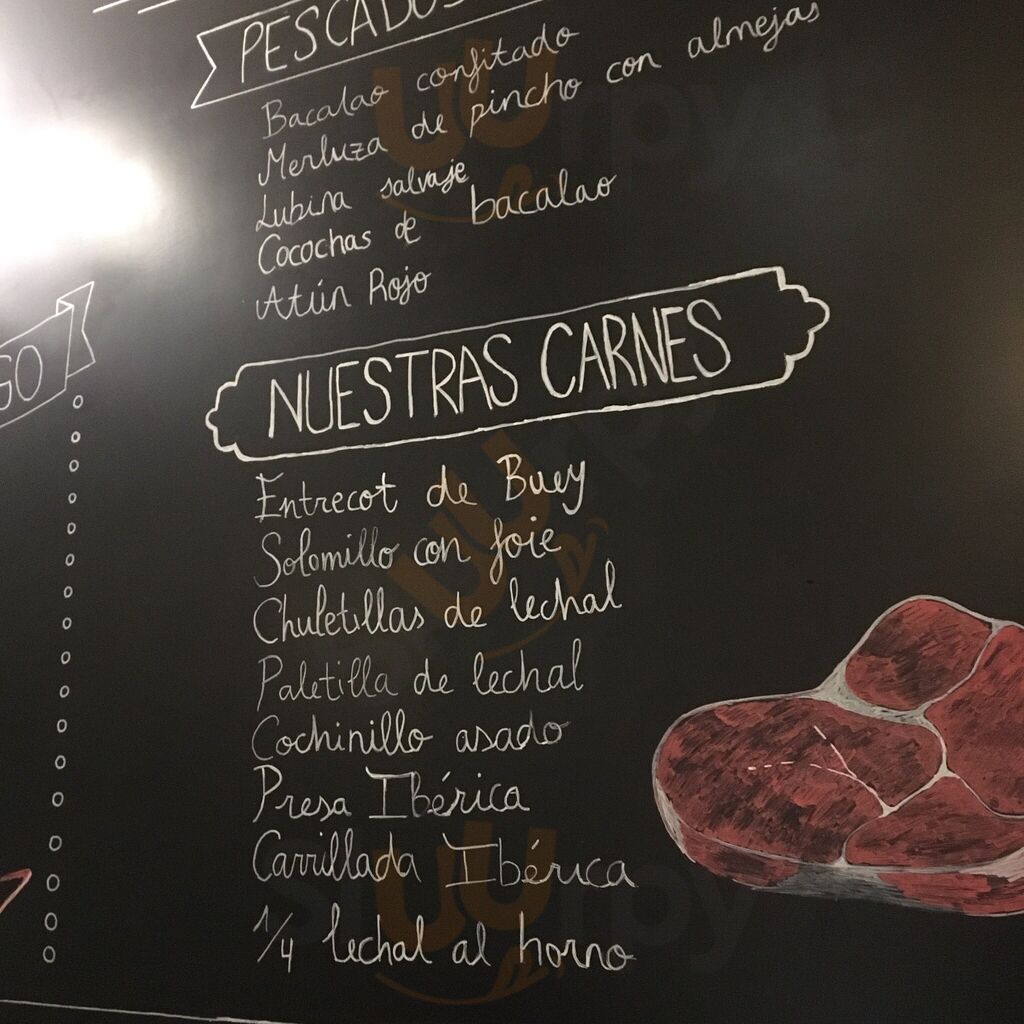 PESCADOS
Bacalao confitado
Merluza de pincho con almejas
Lubina salvaje
Cocochas de bacalao
Atún Rojo
GO
NUESTRAS CARNES
Entrecot de Buey
Solomillo con foie
Chuletillas de lechal
Paletilla de lechal
Cochinillo asado
Presa Ibérica
Carrillada Ibérica
1/4 lechal al horno